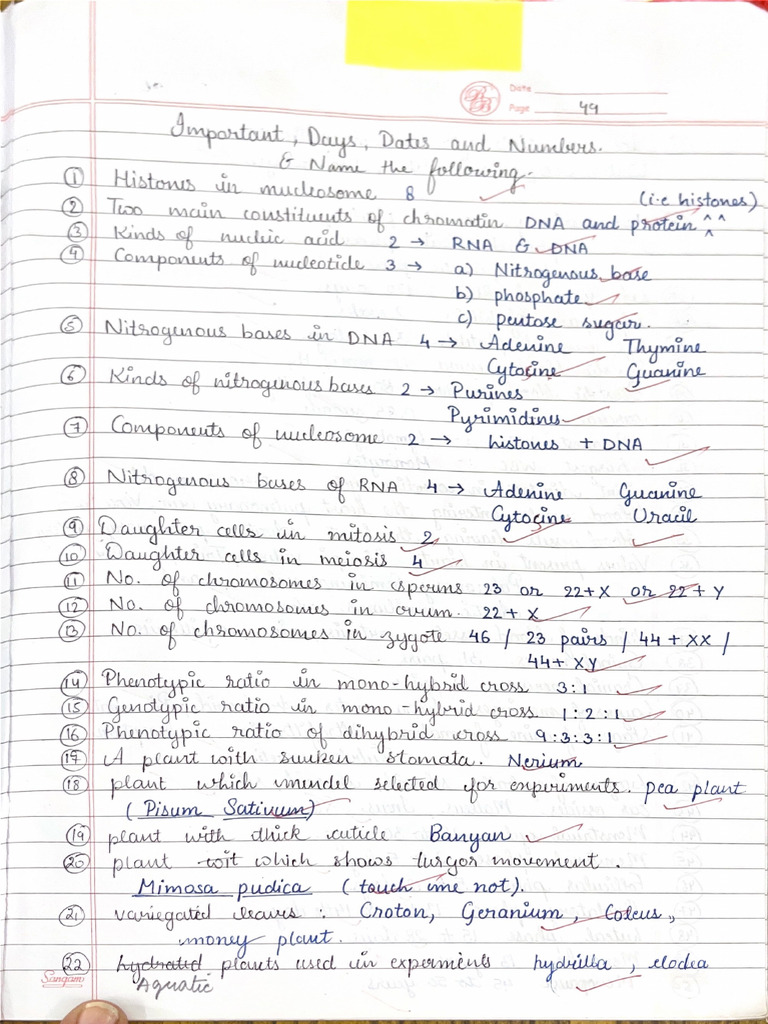 Date
Page 49
Important, Days, Dates and Numbers.
& Name the following.
① Histones in nucleosome 8
(i.e histones)
② Two main constituents of chromatin DNA and protein ^^^
③ Kinds of nucleic acid 2 → RNA & DNA
④ Components of nucleotide 3 → a) Nitrogenous base
b) phosphate
c) pentose sugar.
⑤ Nitrogenous bases in DNA 4 → Adenine Thymine
Cytocine Guanine
⑥ Kinds of nitrogenous bases 2 → Purines
Pyrimidines
⑦ Components of nucleosome 2 → histones + DNA
⑧ Nitrogenous bases of RNA 4 → Adenine Guanine
Cytocine Uracil
⑨ Daughter cells in mitosis 2
⑩ Daughter cells in meiosis 4
⑪ No. of chromosomes in sperms 23 or 22+X or 22+Y
⑫ No. of chromosomes in ovum. 22+X
⑬ No. of chromosomes in zygote 46 / 23 pairs / 44+XX /
44+XY
⑭ Phenotypic ratio in mono-hybrid cross 3:1
⑮ Genotypic ratio in mono-hybrid cross 1:2:1
⑯ Phenotypic ratio of dihybrid cross 9:3:3:1
⑰ A plant with sunken stomata. Nerium
⑱ plant which mendel selected for experiments. pea plant
(Pisum Sativum)
⑲ plant with thick cuticle Banyan
⑳ plant wit which shows turgor movement.
Mimosa pudica (touch me not).
㉑ variegated leaves : Croton, Geranium, Coleus,
money plant.
㉒ hydrated plants used in experments hydrilla, elodea
Aquatic
Sangam